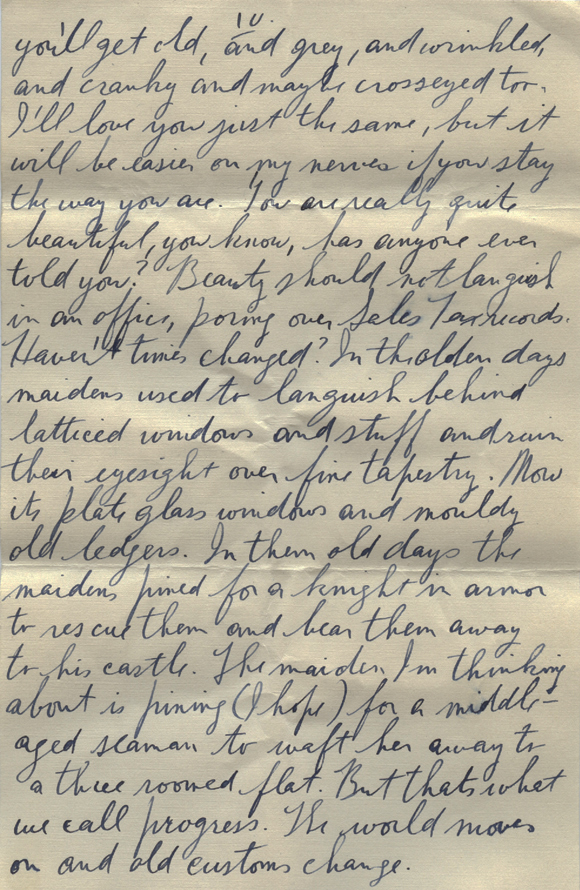 IV.
you'll get old, and grey, and wrinkled,
and cranky and maybe crosseyed too.
I'll love you just the same, but it
will be easier on my nerves if you stay
the way you are. You are really quite
beautiful, you know, has anyone ever
told you? Beauty should not languish
in an office, poring over Sales Tax records.
Haven't times changed? In th olden days
maidens used to languish behind
latticed windows and stuff and ruin
their eyesight over fine tapestry. Now
its plate glass windows and mouldy
old ledgers. In them old days the
maidens pined for a knight in armor
to rescue them and bear them away
to his castle. The maiden I'm thinking
about is pining (I hope) for a middle-
aged seaman to waft her away to
a three roomed flat. But thats what
we call progress. The world moves
on and old customs change.